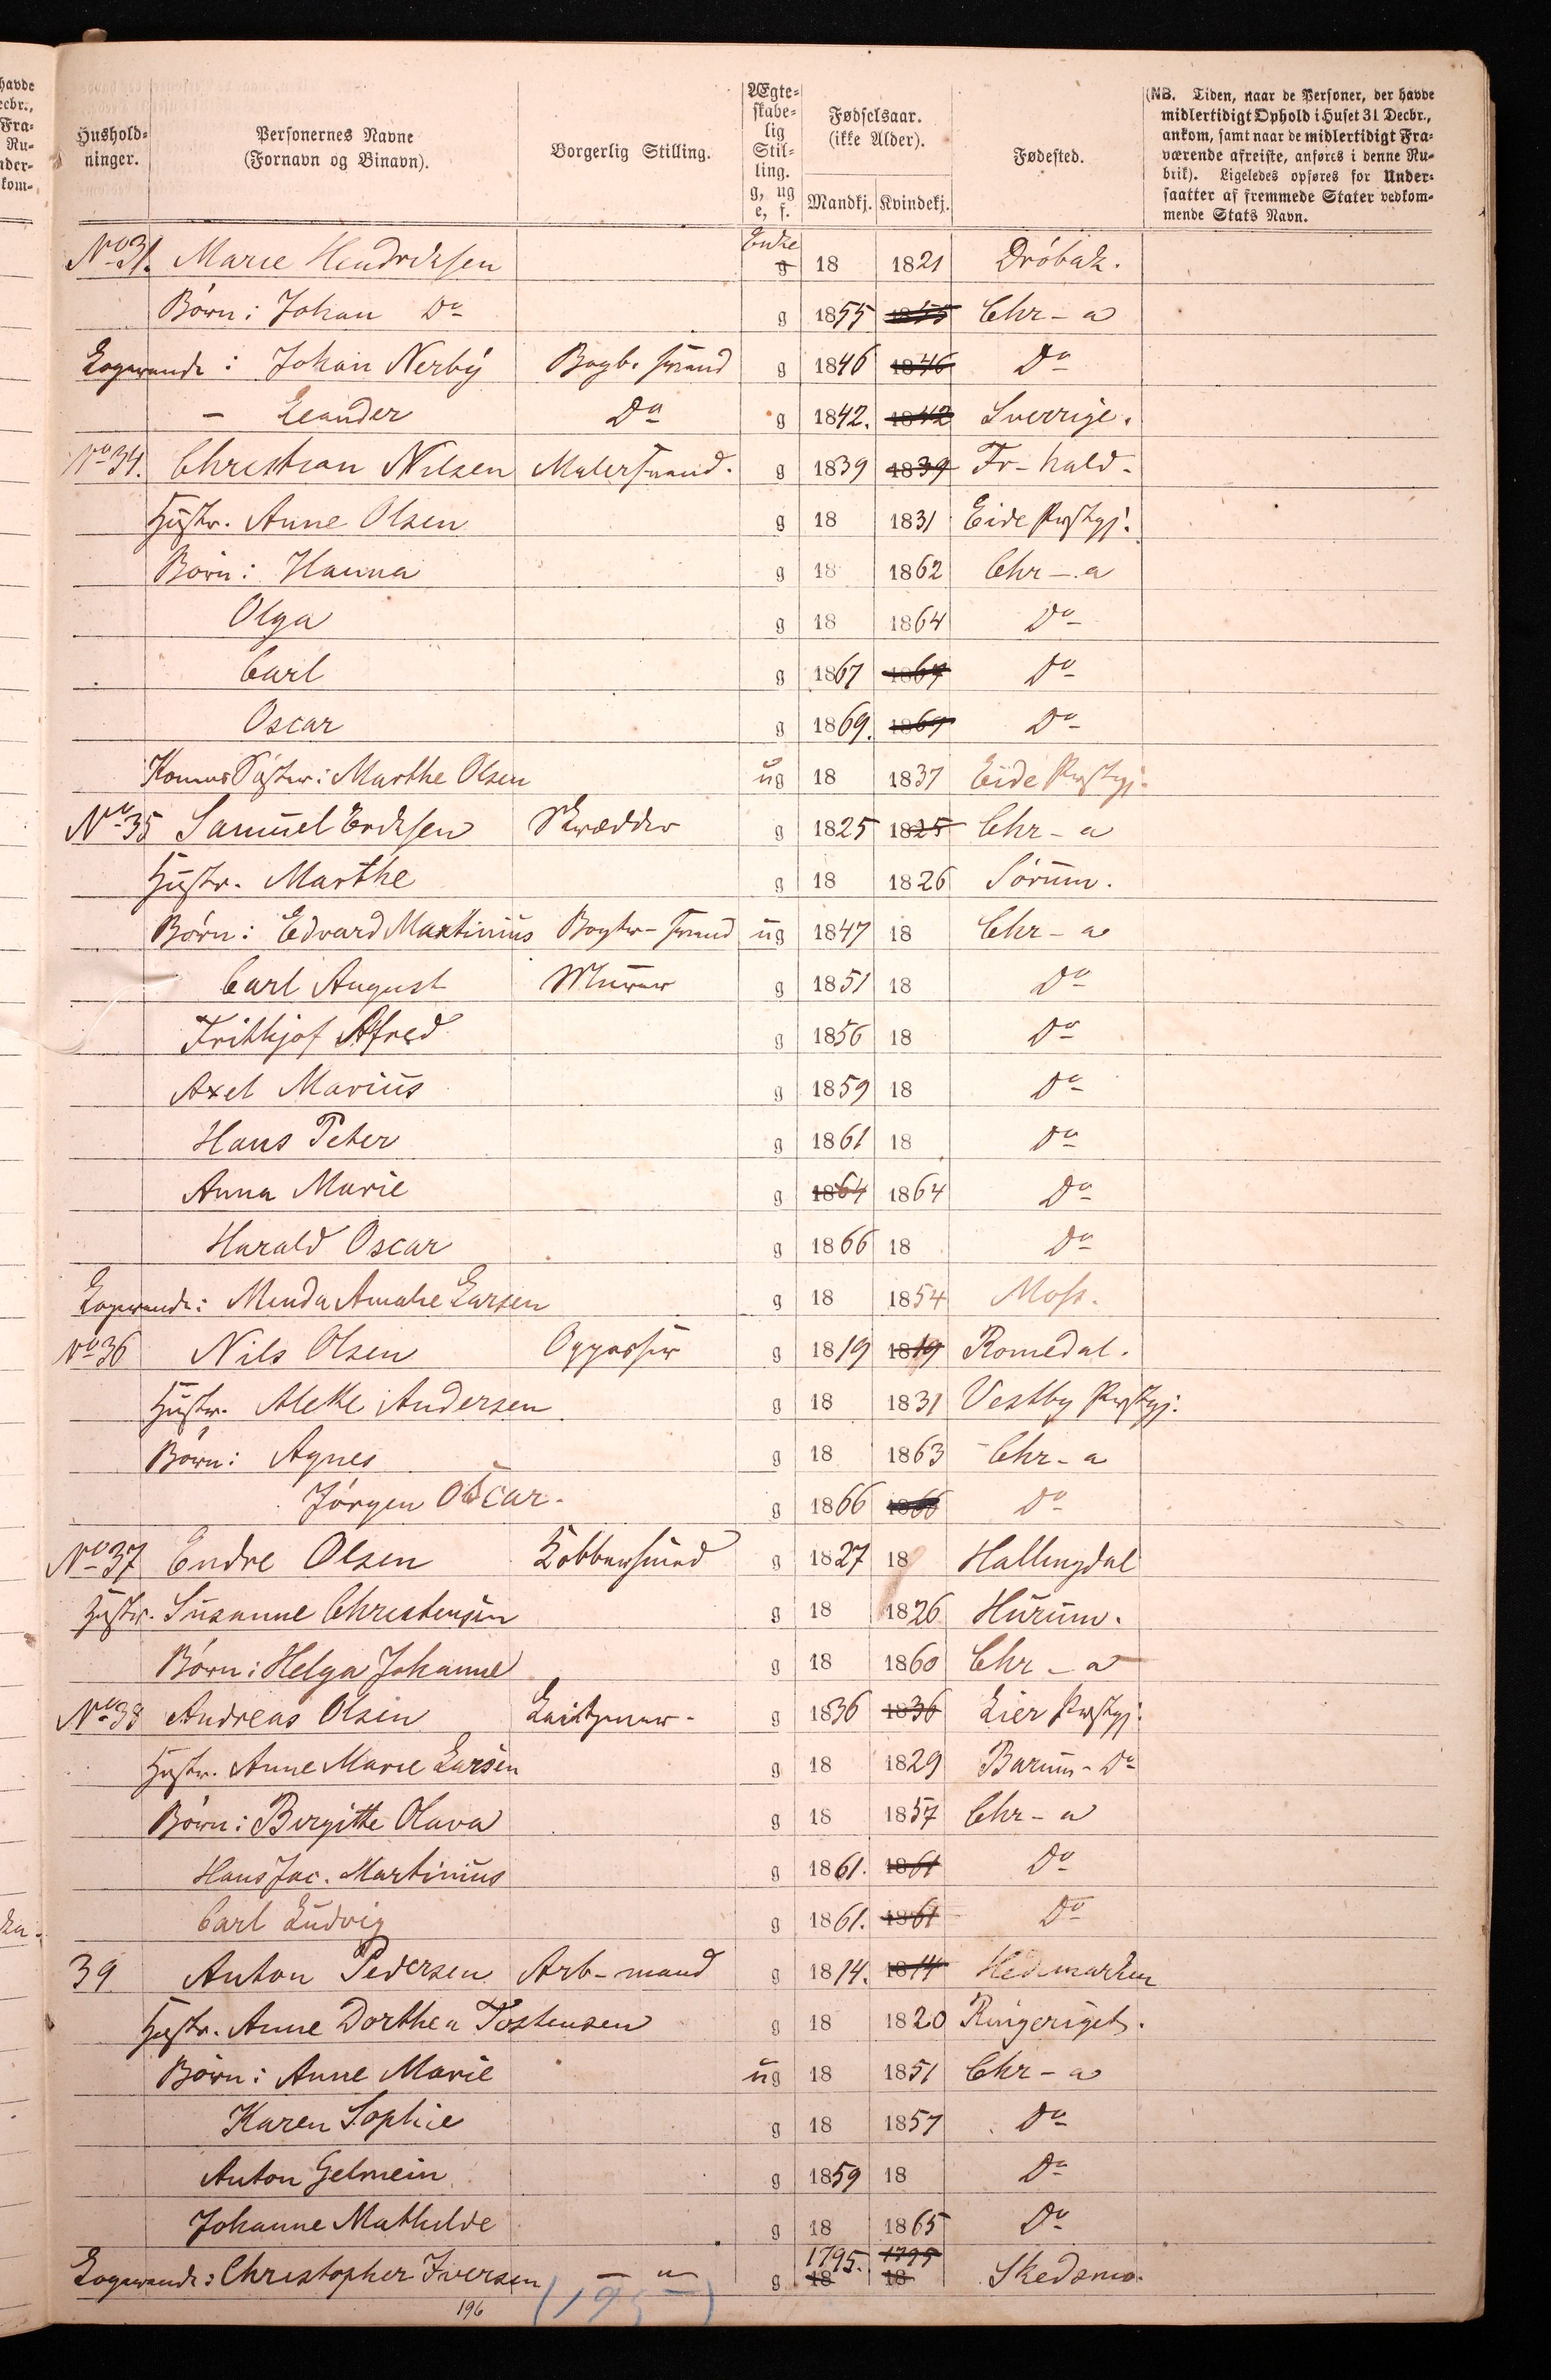 havde
ecbr.,
Fra-
Nu-
nder-
kom-
Hushold-
ninger.
Personernes Navne
(Fornavn og Binavn).
Borgerlig Stilling.
Ægte-
skabe-
lig
Stil-
ling.
g, ug
e, f.
Fødselsaar.
(ikke Alder).
Mandkj. Kvindekj.
Fødested.
(NB. Tiden, naar de Personer, der havde
midlertidigt Ophold i Huset 31 Decbr.,
ankom, samt naar de midlertidigt Fra-
værende afreiste, anføres i denne Ru-
brik). Ligeledes opføres for Under-
saatter af fremmede Stater vedkom-
mende Stats Navn.
No 31. Marie Hendriksen Enke g 18 1821 Dröbak.
Børn: Johan Do g 1855 1855 Chr-a
Logerende: Johan Nerby Bogb. svend g 1846 1846 Do
- Leander Do g 1842. 1842 Sverrige.
No 34. Christian Nilsen Malersvend. g 1839 1839 Fr-hald-
Hustr. Anne Olsen g 18 1831 Eide Prstgj.
Børn: Hanna g 18 1862 Chr-a
Olga g 18 1864 Do
Carl g 1867 1867 Do
Oscar g 1869. 1869 Do
Konens Søster: Marthe Olsen ug 18 1837 Eide Prstgj.
No 35 Samuel Eriksen Skrædder g 1825 1825 Chr-a
Hustr. Marthe g 18 1826 Sörum.
Børn: Edvard Martinius Bogtr-svend ug 1847 18 Chr-a
Carl August Murer g 1851 18 Do
Frithjof Alfred g 1856 18 Do
Axel Marius g 1859 18 Do
Hans Peter g 1861 18 Do
Anna Marie g 1864 1864 Do
Harald Oscar g 1866 18 Do
Logerende: Minda Amalie Larsen g 18 1854 Moss.
No 36 Nils Olsen Oppasser g 1819 1819 Romedal.
Hustr. Alethe Andersen g 18 1831 Vestby Prstgj.
Børn: Agnes g 18 1863 Chr-a
Jörgen Oscar. g 1866 1866 Do
No 37 Endre Olsen Kobbersmed g 1827 18 Hallingdal
Hustr. Susanne Christensen g 18 1826 Hurum.
Børn: Helga Johanne g 18 1860 Chr-a
No 38 Andreas Olsen g 1836 1836 Lier Prstgj.
Hustr. Anne Marie Larsen g 18 1829 Barum-Do
Børn: Birgitte Olava g 18 1857 Chr-a
Hans Jac. Martinius g 1861. 1861 Do
Carl Ludvig g 1861. 1861 Do
39 Anton Pedersen Arb-mand g 1814. 1814 Hedmarken
Hustr. Anne Dorthea Tostensen g 18 1820 Ringeriget.
Børn: Anne Marie ug 18 1851 Chr-a
Karen Sophie g 18 1857 Do
Anton Gelmein g 1859 18 Do
Johanne Mathilde g 18 1865 Do
Logerende: Christopher Iversen - " g 1795. 18 1795 18 Skedsmo.
196
(195)